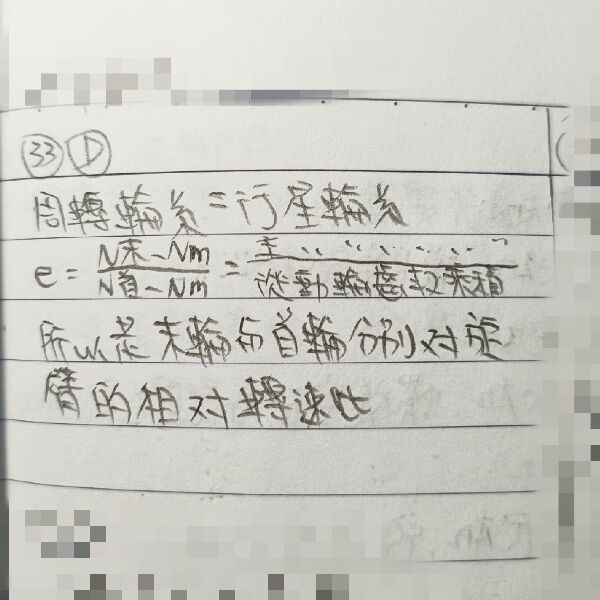 ㉝ Ⓓ
周轉輪系=行星輪系
e = (N末-Nm)/(N首-Nm) = 主〃〃〃〃/從動輪齒數乘積
所以是末輪与首輪分别对旋
臂的相对轉速比